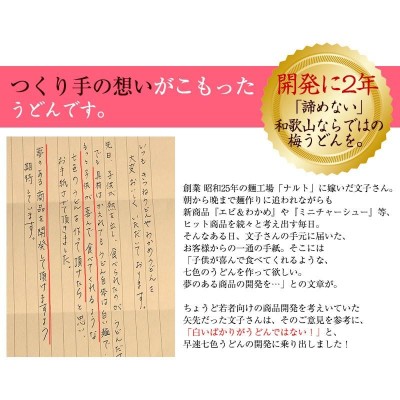 つくり手の想いがこもった
うどんです。
開発に2年
「諦めない」
和歌山ならではの
梅うどんを。
いつもきつねうどんやわかめうどんを
大変おいしくいただいております。
七色のうどんを作って頂けたらと思い
お手紙させて頂きました。
夢のある商品を開発して頂けますよう
期待しています。
創業 昭和25年の麺工場「ナルト」に嫁いだ文子さん。
朝から晩まで麺作りに追われながらも
新商品『エビ＆わかめ』や『ミニチャーシュー』等、
ヒット商品を続々と考え出す毎日。
そんなある日、文子さんの手元に届いた、
お客様からの一通の手紙。そこには
「子供が喜んで食べてくれるような、
七色のうどんを作って欲しい。
夢のある商品の開発を…」との文章が。
ちょうど若者向けの商品開発を考えていた
矢先だった文子さんは、そのご意見を参考に、
「白いばかりがうどんではない！」と、
早速七色うどんの開発に乗り出しました！